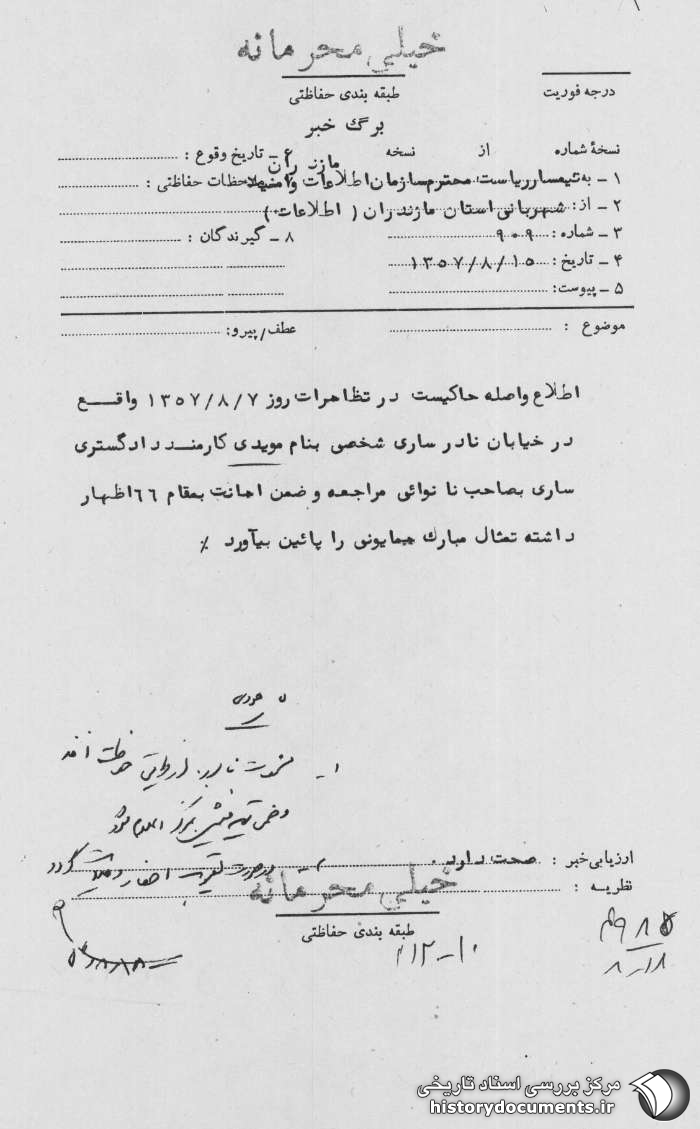 خیلی محرمانه
طبقه بندی حفاظتی
درجه فوریت
برگ خبر
نسخهٔ شماره از نسخه
۱ ـ به تیمسار ریاست محترم سازمان اطلاعات و امنیت مازندران
۲ ـ از: شهربانی استان مازندران ( اطلاعات )
۳ ـ شماره: ۹۰۹
۴ ـ تاریخ: ۱۳۵۷/۸/۱۵
۵ ـ پیوست:
۶ ـ تاریخ وقوع :
ملاحظات حفاظتی :
۸ ـ گیرندگان :
موضوع :
عطف/پیرو:
اطلاع واصله حاکیست در تظاهرات روز ۱۳۵۷/۸/۷ واقع
در خیابان نادر ساری شخصی بنام مویدی کارمند دادگستری
ساری بصاحب نانوائی مراجعه و ضمن اهانت بمقام ۶۶ اظهار
داشته تمثال مبارک همایونی را پائین بیآورد ٪
۱ـ
ارزیابی خبر : صحت دارد .
نظریه :
خیلی محرمانه
طبقه بندی حفاظتی
۳۱۲-۱۰
۸/۱۸
مرکز بررسی اسناد تاریخی
historydocuments.ir